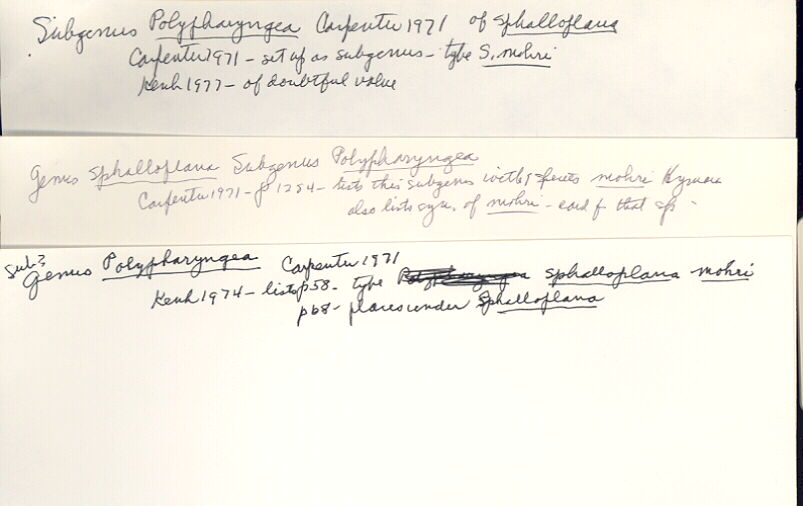 Subgenus Polypharyngea Carpenter 1971 of Sphalloplana
Carpenter 1971 - set up as subgenus - type S. mohri
Kenk 1977 - of doubtful value
Genus Sphalloplana Subgenus Polypharyngea
Carpenter 1971 - p 1284 - lists this subgenus with 1 species mohri Hyman
also lists syn. of mohri - card f that sp -
Sub? Genus Polypharyngea Carpenter 1971
Kenk 1974 - lists p58 - type Sphalloplana mohri
p68 - places under Sphalloplana